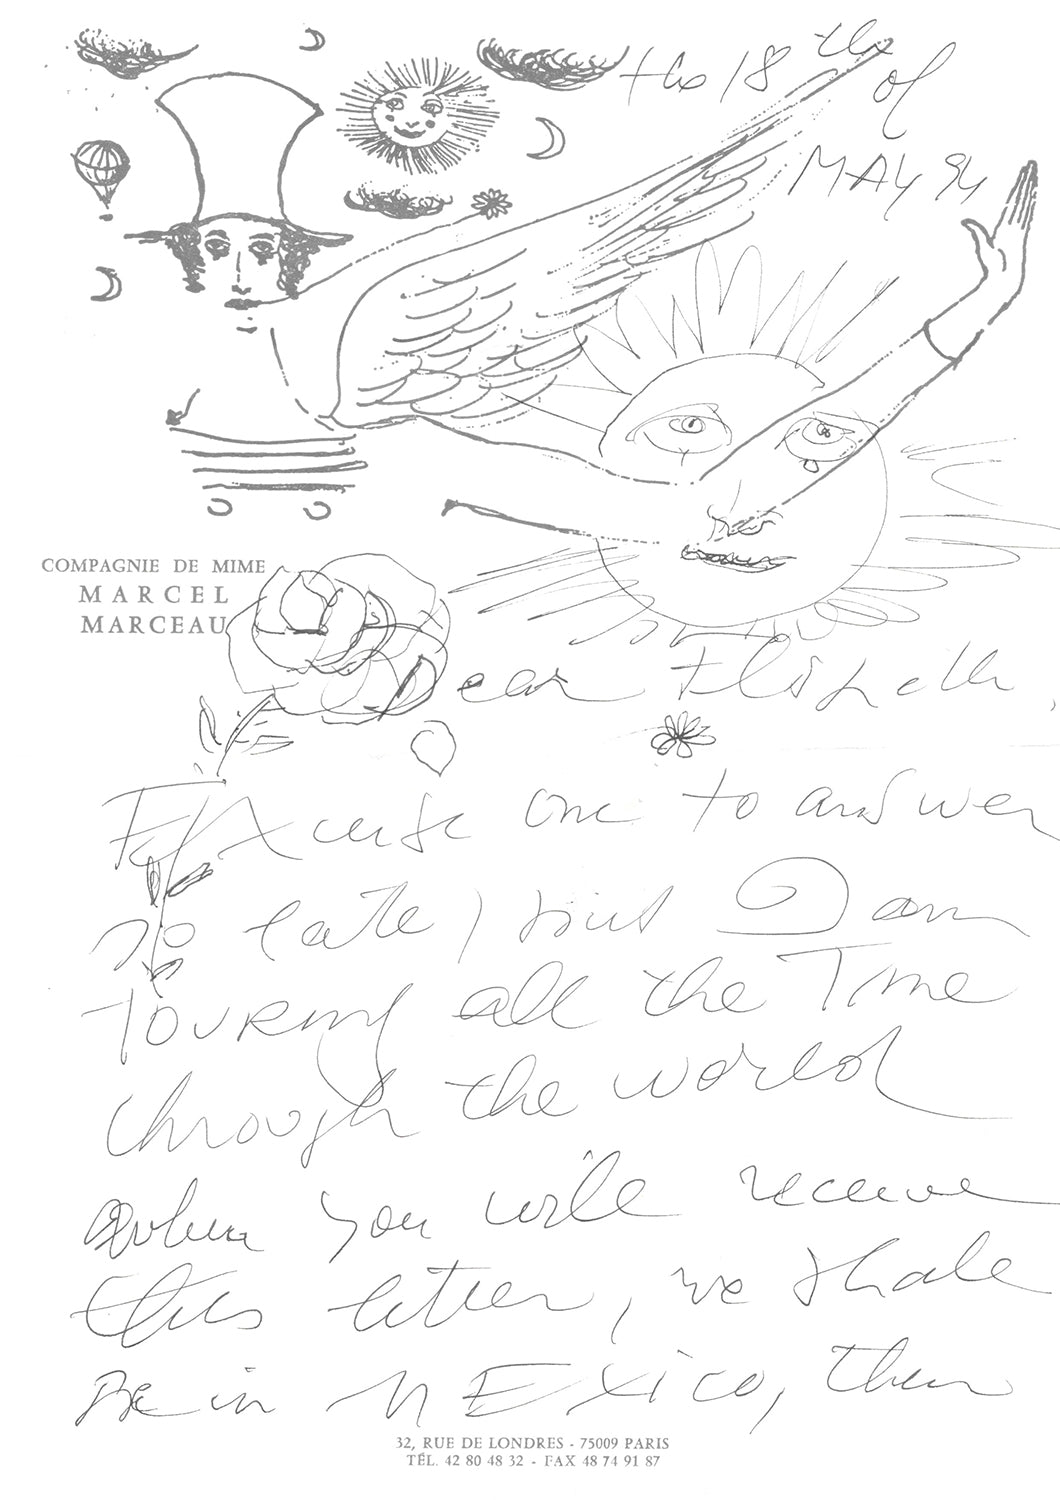 the 18 the of
MAY 94
COMPAGNIE DE MIME
MARCEL
MARCEAU
Dear Elisabeth,
Excuse me to answer
so late, but I am
TOURING all the Time
through the world
when you will receive
this letter, we shall
Be in MEXico, then
32, RUE DE LONDRES - 75009 PARIS
TÉL. 42 80 48 32 - FAX 48 74 91 87